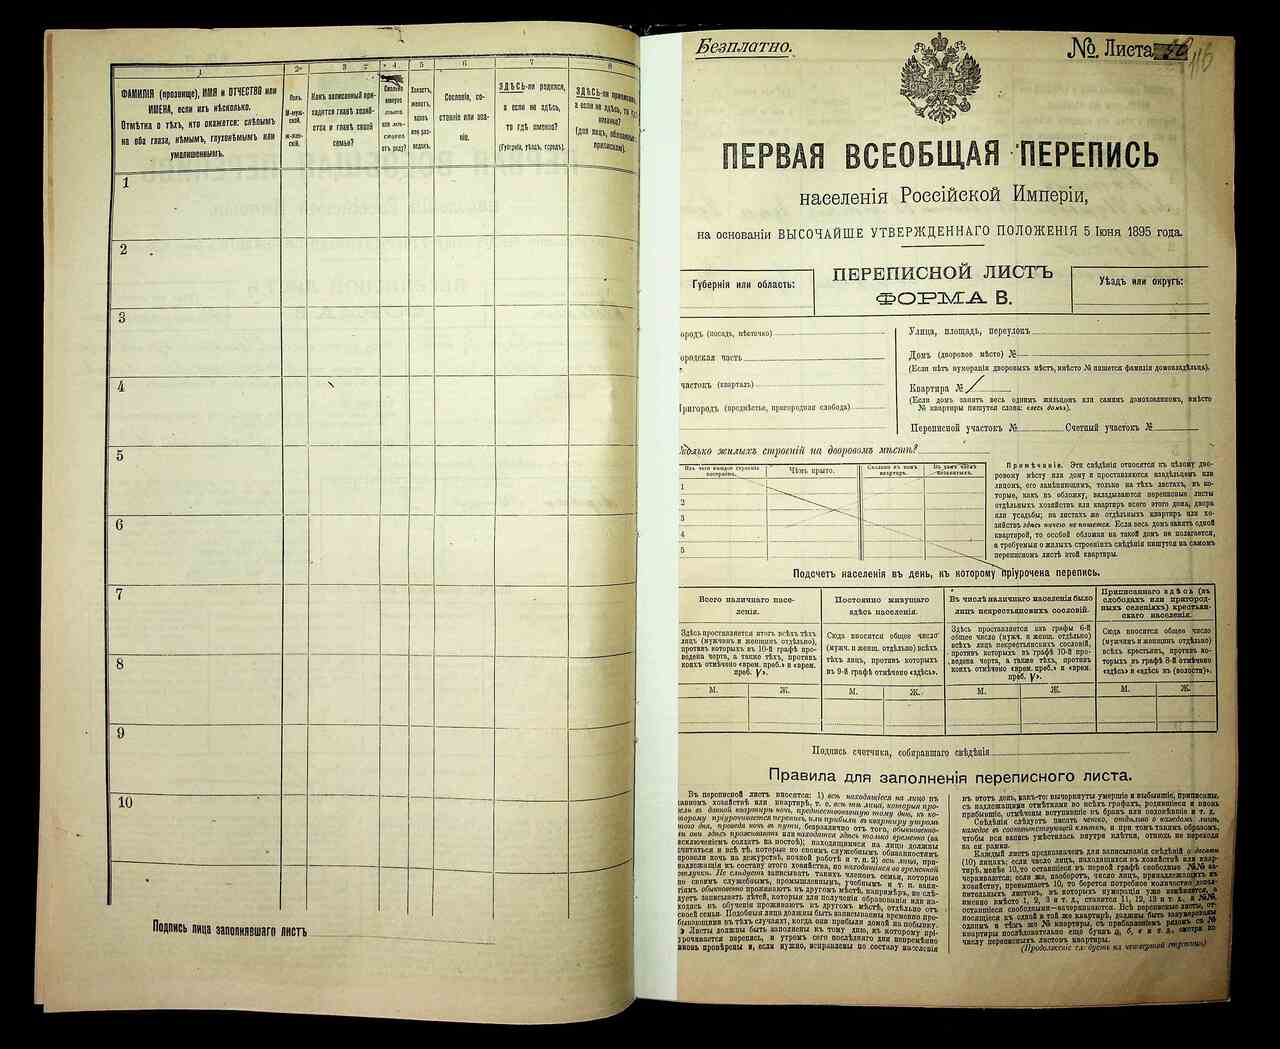 1
ФАМИЛІЯ (прозвище), ИМЯ и ОТЧЕСТВО или
ИМЕНА, если ихъ нѣсколько.
Отмѣтка о тѣхъ, кто окажется: слѣпымъ
на оба глаза, нѣмымъ, глухонѣмымъ или
умалишеннымъ.
2
Полъ.
М-муж-
ской.
ж-жен-
скій.
3
Какъ записанный при-
ходится главѣ хозяй-
ства и главѣ своей
семьи?
4
Сколько
минуло
лѣтъ
или мѣ-
сяцевъ
отъ роду?
5
Холостъ,
женатъ,
вдовъ
или раз-
веденъ.
6
Сословіе, со-
стояніе или зва-
ніе.
7
ЗДѢСЬ-ли родился,
а если не здѣсь,
то гдѣ именно?
(Губернія, уѣздъ, городъ).
8
ЗДѢСЬ-ли приписанъ,
а если не здѣсь, то гдѣ
именно?
(для лицъ, обязанныхъ
припискою).
1
2
3
4
5
6
7
8
9
10
Подпись лица заполнявшаго листъ
Безплатно.
№ Листа
116
ПЕРВАЯ ВСЕОБЩАЯ ПЕРЕПИСЬ
населенія Россійской Имперіи,
на основаніи ВЫСОЧАЙШЕ УТВЕРЖДЕННАГО ПОЛОЖЕНІЯ 5 Іюня 1895 года.
Губернія или область:
ПЕРЕПИСНОЙ ЛИСТЪ
ФОРМА В.
Уѣздъ или округъ:
ородъ (посадъ, мѣстечко)
ородская часть
частокъ (кварталъ)
Пригородъ (предмѣстье, пригородная слобода)
Улица, площадь, переулокъ
Домъ (дворовое мѣсто) №
(Если нѣтъ нумераціи дворовыхъ мѣстъ, вмѣсто № пишется фамилія домовладѣльца).
Квартира №
(Если домъ занятъ весь однимъ жильцомъ или самимъ домохозяиномъ, вмѣсто
№ квартиры пишутся слова: «весь домъ»).
Переписной участокъ № Счетный участокъ №
колько жилыхъ строеній на дворовомъ мѣстѣ?
Изъ чего каждое строеніе
построено.
Чѣмъ крыто.
Сколько въ немъ
квартиръ.
Въ томъ числѣ
незанятыхъ.
1
2
3
4
5
Примѣчаніе. Эти свѣдѣнія относятся къ цѣлому дво-
ровому мѣсту или дому и проставляются владѣльцемъ или
лицомъ, его замѣняющимъ, только на тѣхъ листахъ, въ ко-
торые, какъ въ обложку, вкладываются переписные листы
отдѣльныхъ хозяйствъ или квартиръ всего этого дома, двора
или усадьбы; на листахъ же отдѣльныхъ квартиръ или хо-
зяйствъ здѣсь ничего не пишется. Если весь домъ занятъ одной
квартирой, то особой обложки на такой домъ не полагается,
а требуемыя о жилыхъ строеніяхъ свѣдѣнія пишутся на самомъ
переписномъ листѣ этой квартиры.
Подсчетъ населенія въ день, къ которому пріурочена перепись.
Всего наличнаго насе-
ленія.
Здѣсь проставляется итогъ всѣхъ тѣхъ
лицъ (мужчинъ и женщинъ отдѣльно),
противъ которыхъ въ 10-й графѣ про-
ведена черта, а также тѣхъ, противъ
коихъ отмѣчено «врем. преб.» и «врем.
преб. V».
Постоянно живущаго
здѣсь населенія.
Сюда вносится общее число
(мужч. и женщ. отдѣльно) всѣхъ
тѣхъ лицъ, противъ которыхъ
въ 9-й графѣ отмѣчено «здѣсь».
Въ числѣ наличнаго населенія было
лицъ некрестьянскихъ сословій.
Здѣсь проставляется изъ графы 6-й
общее число (мужч. и женщ. отдѣльно)
всѣхъ лицъ некрестьянскихъ сословій,
противъ которыхъ въ графѣ 10-й про-
ведена черта, а также тѣхъ, противъ
коихъ отмѣчено «врем. преб.» и «врем.
преб. V».
Приписаннаго здѣсь (въ
слободахъ или пригород-
ныхъ селеніяхъ) крестьян-
скаго населенія.
Сюда вносится общее число
(мужчинъ и женщинъ отдѣльно)
всѣхъ крестьянъ, противъ ко-
торыхъ въ графѣ 8-й отмѣчено
«здѣсь» и «здѣсь въ (волости)».
М. Ж. М. Ж. М. Ж. М. Ж.
Подпись счетчика, собиравшаго свѣдѣнія
Правила для заполненія переписного листа.
Въ переписной листъ вносятся: 1) всѣ находящіеся на лицо въ
данномъ хозяйствѣ или квартирѣ, т. е. всѣ тѣ лица, которыя про-
вели въ данной квартирѣ ночь, предшествовавшую тому дню, къ ко-
торому пріурочивается перепись, или прибыли въ квартиру утромъ
того дня, проведя ночь въ пути, безразлично отъ того, обыкновенно-
ли они здѣсь проживаютъ или находятся здѣсь только временно (за
исключеніемъ солдатъ на постоѣ); находящимися на лицо должны
считаться и всѣ тѣ, которые по своимъ служебнымъ обязанностямъ
провели ночь на дежурствѣ, ночной работѣ и т. п. 2) всѣ лица, при-
надлежащія къ составу этого хозяйства, но находящіяся во временной
отлучкѣ. Не слѣдуетъ записывать такихъ членовъ семьи, которые
по своимъ служебнымъ, промышленнымъ, учебнымъ и т. п. заня-
тіямъ обыкновенно проживаютъ въ другомъ мѣстѣ, напримѣръ, не слѣ-
дуетъ записывать дѣтей, которыя для полученія образованія или на-
ходясь въ обученіи проживаютъ въ другомъ мѣстѣ, отдѣльно отъ
своей семьи. Подобныя лица должны быть записываемы временно пре-
бывающими въ тѣхъ случаяхъ, когда они прибыли домой на побывку.
Листы должны быть заполнены къ тому дню, къ которому прі-
урочивается перепись, и утромъ сего послѣдняго дня непремѣнно
вновь провѣрены и, если нужно, исправлены по составу населенія
въ этотъ день, какъ-то: вычеркнуты умершіе и выбывшіе, приписаны,
съ надлежащими отмѣтками во всѣхъ графахъ, родившіеся и вновь
прибывшіе, отмѣчены вступившіе въ бракъ или овдовѣвшіе и т. д.
Свѣдѣнія слѣдуетъ писать четко, отдѣльно о каждомъ лицѣ,
каждое въ соотвѣтствующей клѣткѣ, и при томъ такимъ образомъ,
чтобы вся запись умѣстилась внутри клѣтки, отнюдь не переходя
за ея рамки.
Каждый листъ предназначенъ для записыванія свѣдѣній о десяти
(10) лицахъ; если число лицъ, находящихся въ хозяйствѣ или квар-
тирѣ, менѣе 10, то оставшіеся въ первой графѣ свободные №№ за-
черкиваются; если же, наоборотъ, число лицъ, принадлежащихъ къ
хозяйству, превышаетъ 10, то берется потребное количество допол-
нительныхъ листовъ, въ которыхъ нумерація уже измѣняется, а
именно вмѣсто 1, 2, 3 и т. д., ставится 11, 12, 13 и т. д., а №№
оставшіеся свободными—зачеркиваются. Всѣ переписные листы, от-
носящіеся къ одной и той же квартирѣ, должны быть занумерованы
однимъ и тѣмъ же № квартиры, съ прибавленіемъ рядомъ съ №
квартиры послѣдовательно еще буквъ а, б, в и т. д., смотря по
числу переписныхъ листовъ квартиры.
(Продолженіе слѣдуетъ на четвертой страницѣ)